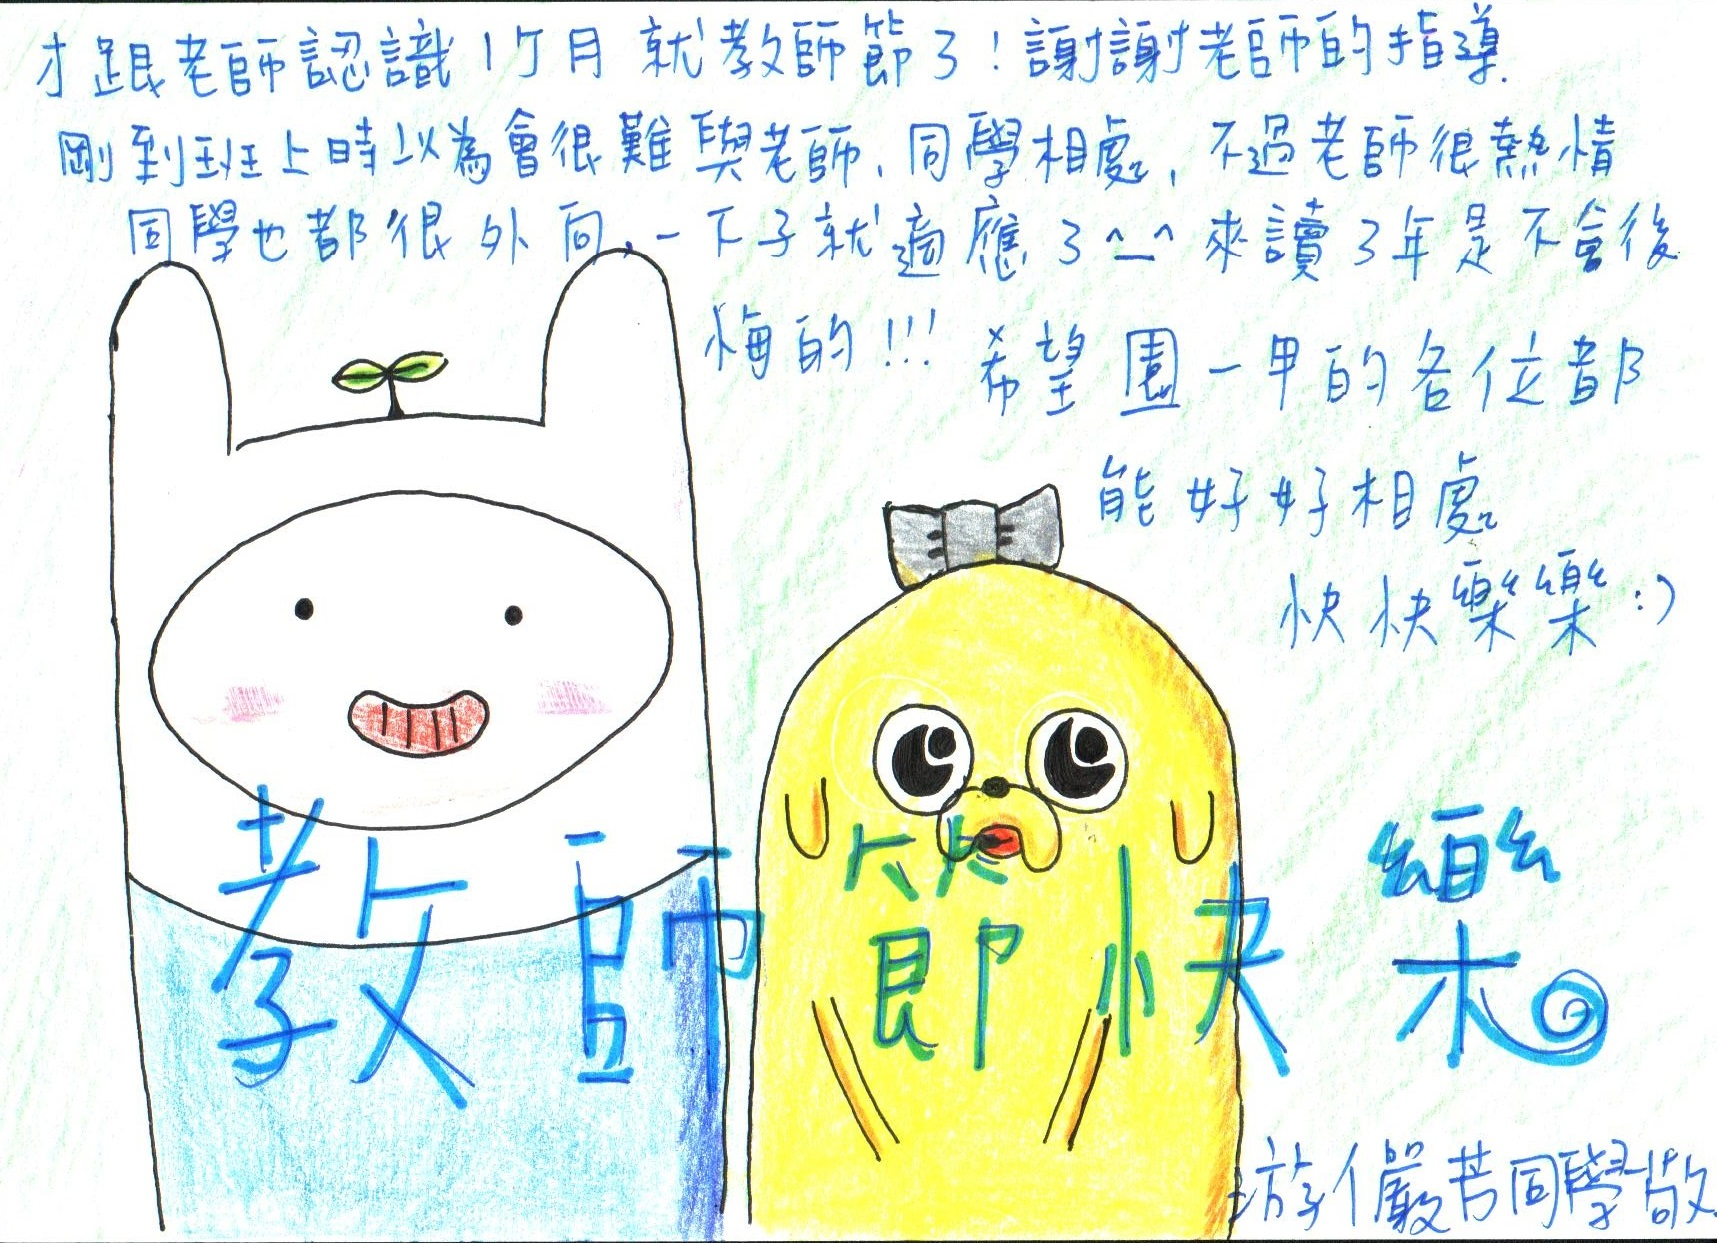 才跟老師認識1个月就教師節了!謝謝老師的指導.
剛到班上時以為會很難與老師、同學相處,不過老師很熱情
同學也都很外向,一下子就適應了^_^來讀3年是不會後
悔的!!!希望園一甲的各位都
能好好相處
快快樂樂:)
教師節快樂
游儼芳同學敬